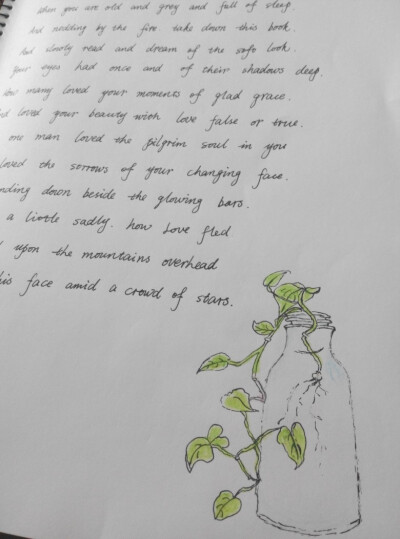 When you are old and grey and full of sleep
And nodding by the fire. take down this book.
And slowly read and dream of the soft look.
Your eyes had once and of their shadows deep.
How many loved your moments of glad grace.
And loved your beauty with love false or true.
one man loved the pilgrim soul in you
loved the sorrows of your changing face.
nding down beside the glowing bars.
a little sadly. how Love fled
upon the mountains overhead
his face amid a crowd of stars.